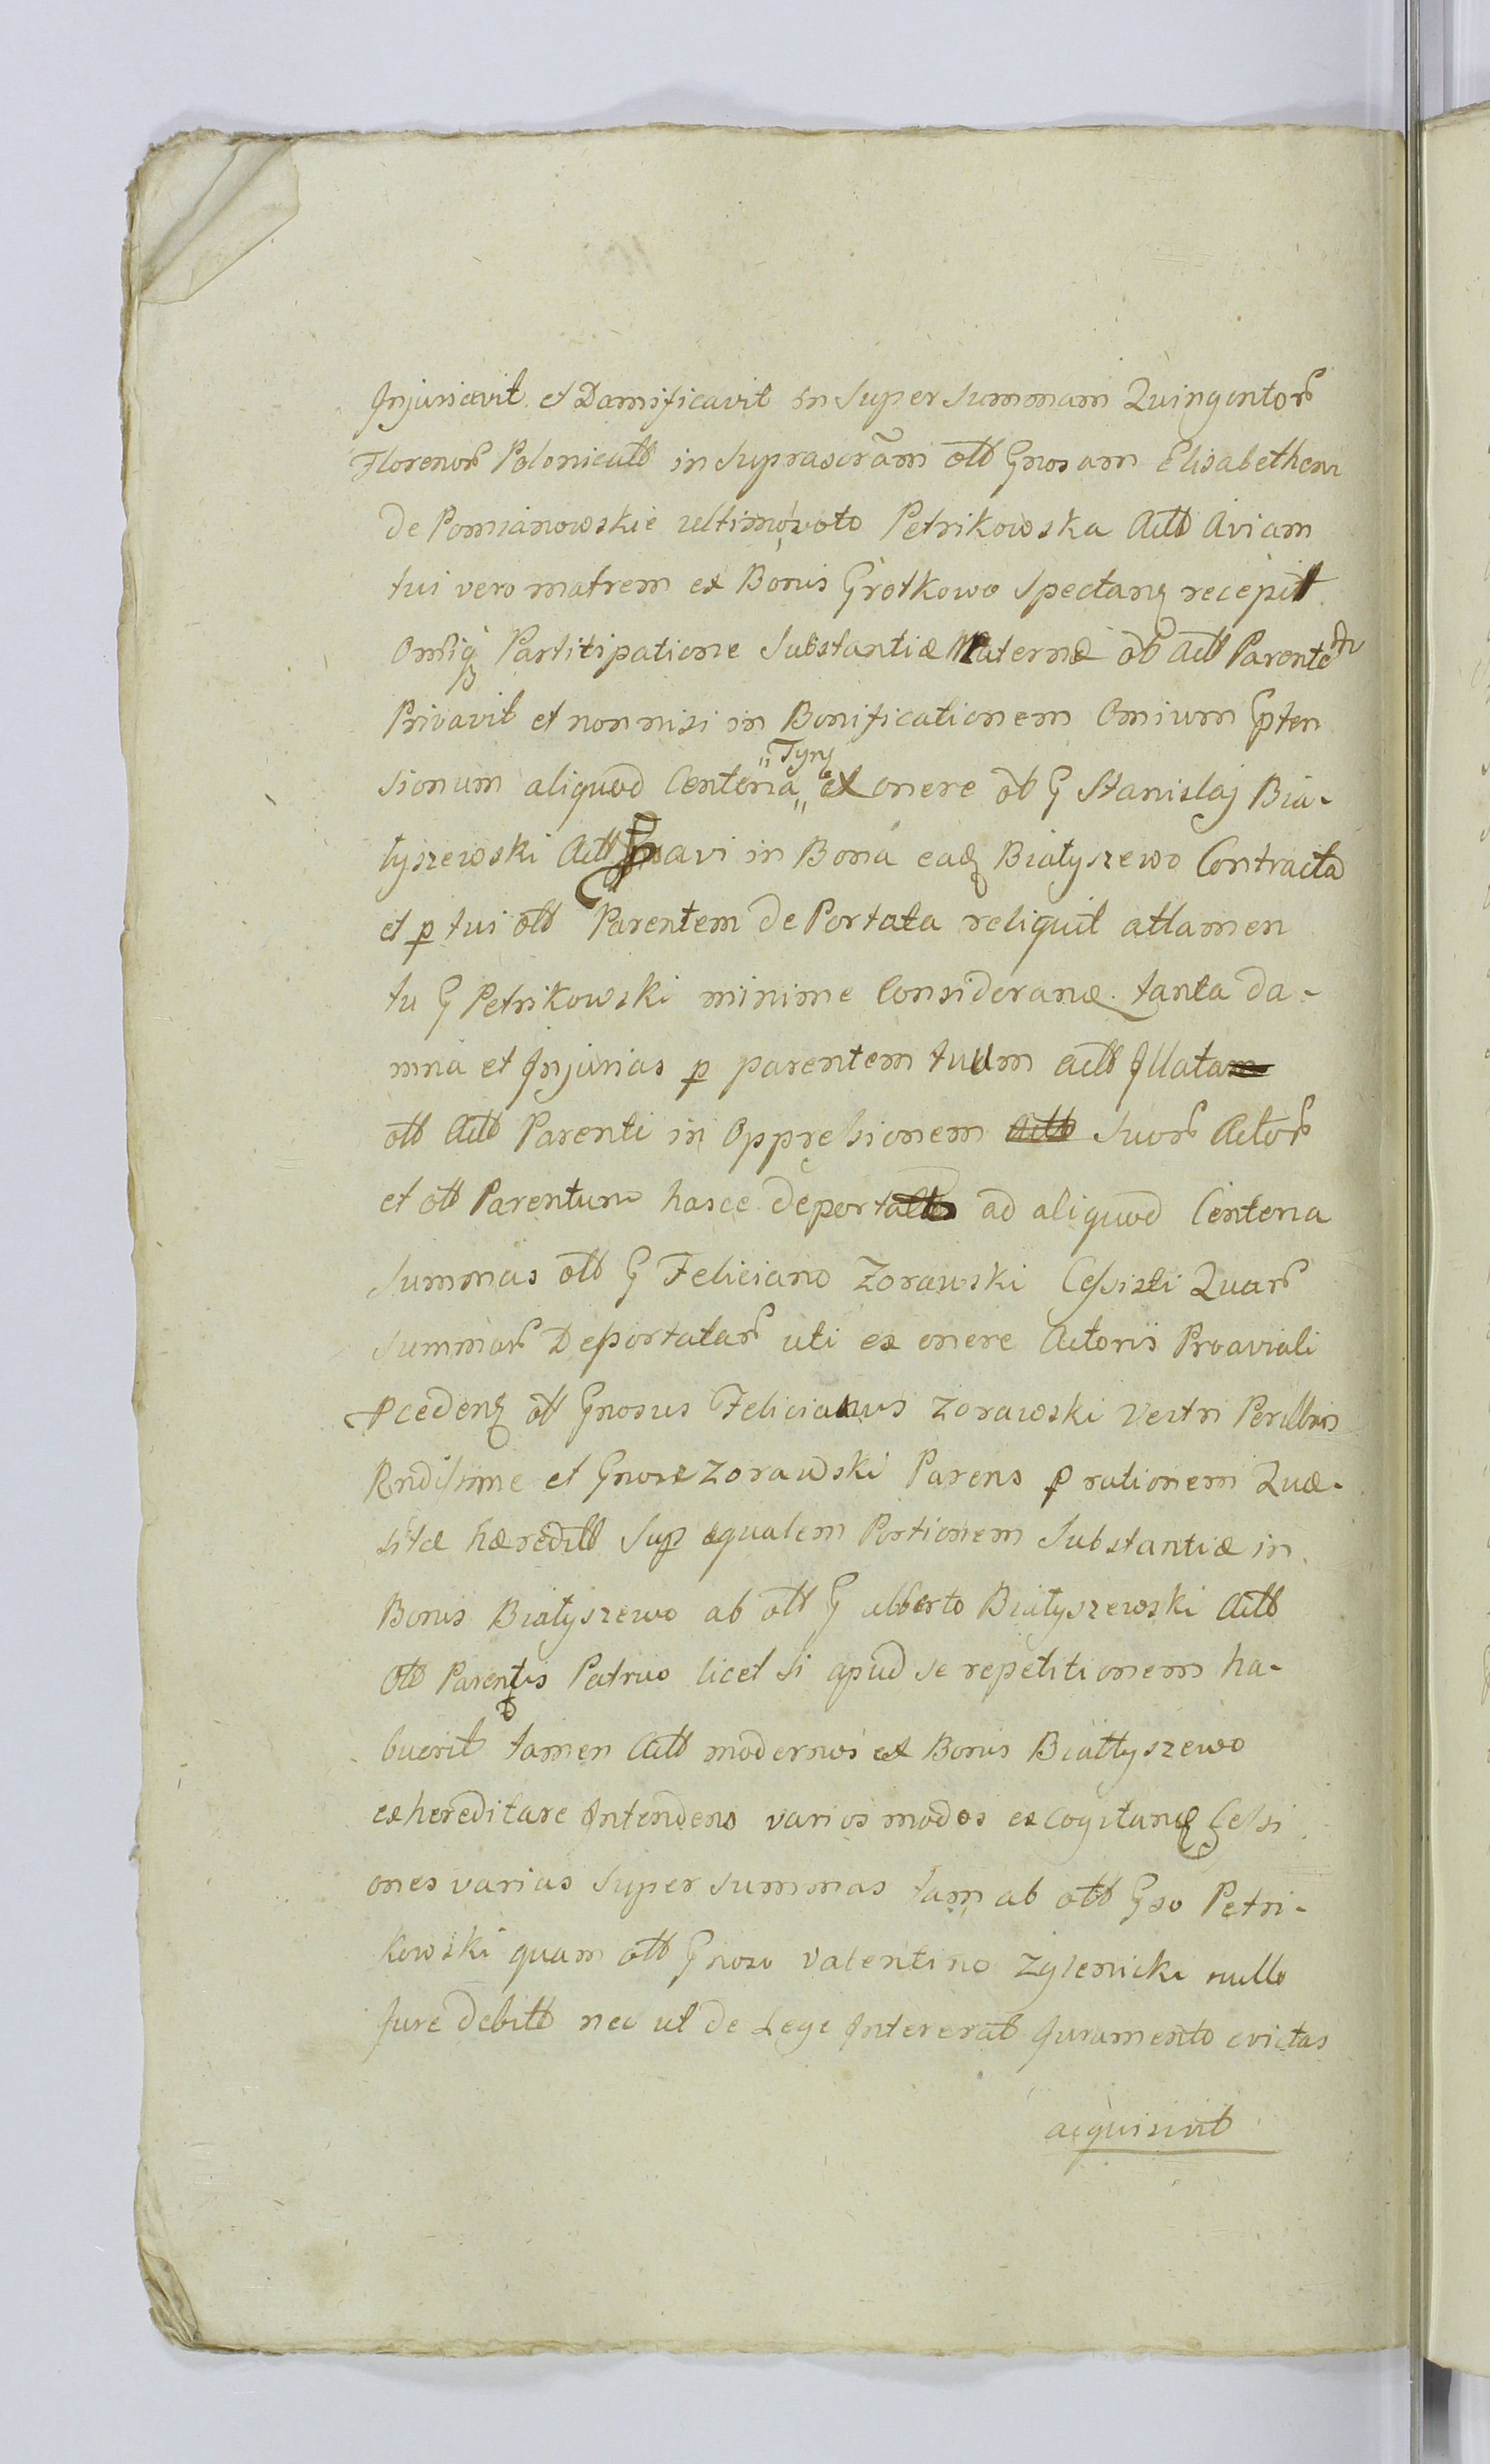 Injuriavit et Damificavit in super summam Quingentor
Florenor Polonicalb in suprascram olb Gnosam Elisabetham
de Pomianowskie ultimo voto Petrikowska Actb Aviam
tui vero matrem ex Bonis Grotkowo Spectanz recepit
Omiq Partitipatione Substantiæ Maternæ ob Actb Parentem
Privavit et non nisi in Bonificationem Omium Spten
sionum aliquod Centena „Tynf„ ex onere ob G Stanislaj Bia-
łyszewski Actb avi in Bona eadz Białyszewo Contracta
et p tui olb Parentem de Portata reliquit attamen
tu G Petrikowski minime Consideranz tanta da-
mna et Injurias p parentem tuum actb Illata
olb Actb Parenti in Oppressionem Actb Suor Actor
et olb Parentum hasce deportatb ad aliquod Centena
Summas olb G Feliciano Zorawski Cessisti Quar
Summar Deportatar uti ex onere Actoris Proaviali
Pcedenz olb Gnosus Felicianus Zorawski Vestri Perillris
Rndissime et Gnose Zorawski Parens p rationem Quæ-
sitæ hæreditb Sup æqualem Portionem Substantiæ in
Bonis Białyszewo ab olb G alberto Białyszewski Actb
olb Parentis Patruo licet si apud se repetitionem ha-
buerit tamen Actb modernos ex Bonis Białłyszewo
exhereditare Intendens varios modos excogitanz Cessi
ones varias super summas tam ab olb Gso Petri-
kowski quam olb Gnoso Valentino Zglenicki nullo
Jure debitb nec ut de Lege Intererat Juramento evictas
acquisivit